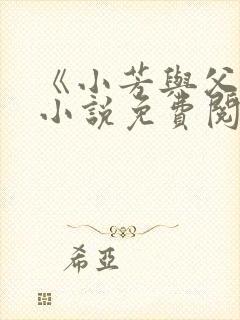 《小芳與父
小說免費閱
希亞